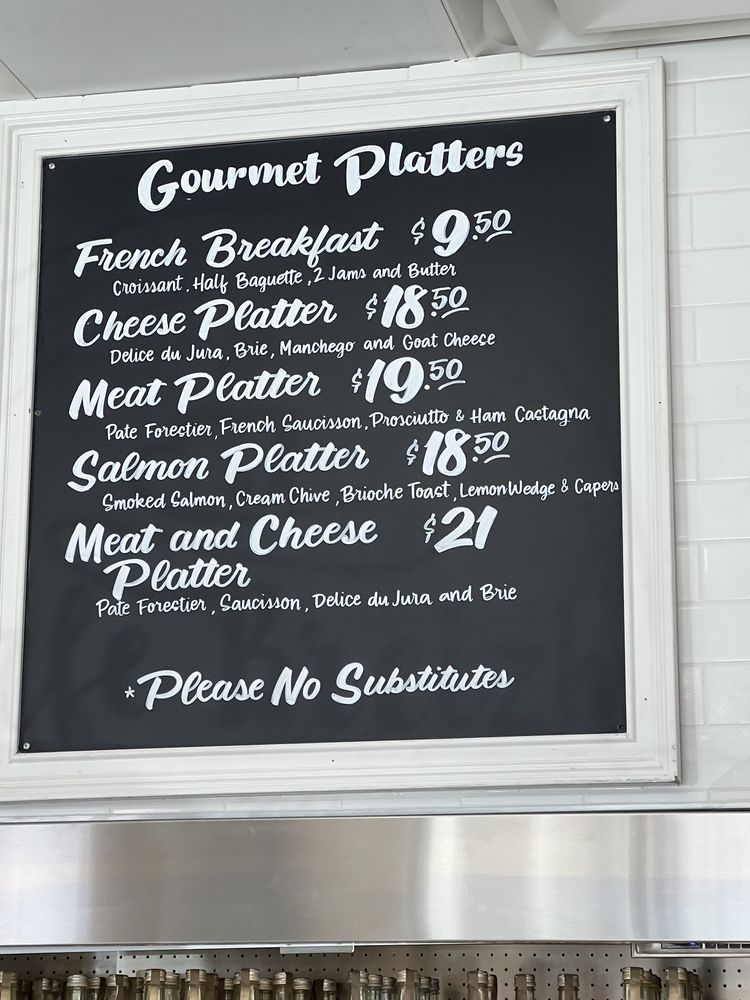 Gourmet Platters
French Breakfast $9.50
Croissant, Half Baguette, 2 Jams and Butter
Cheese Platter $18.50
Delice du Jura, Brie, Manchego and Goat Cheese
Meat Platter $19.50
Pate Forestier, French Saucisson, Prosciutto & Ham Castagna
Salmon Platter $18.50
Smoked Salmon, Cream Chive, Brioche Toast, Lemon Wedge & Capers
Meat and Cheese $21
Platter
Pate Forestier, Saucisson, Delice du Jura and Brie
*Please No Substitutes